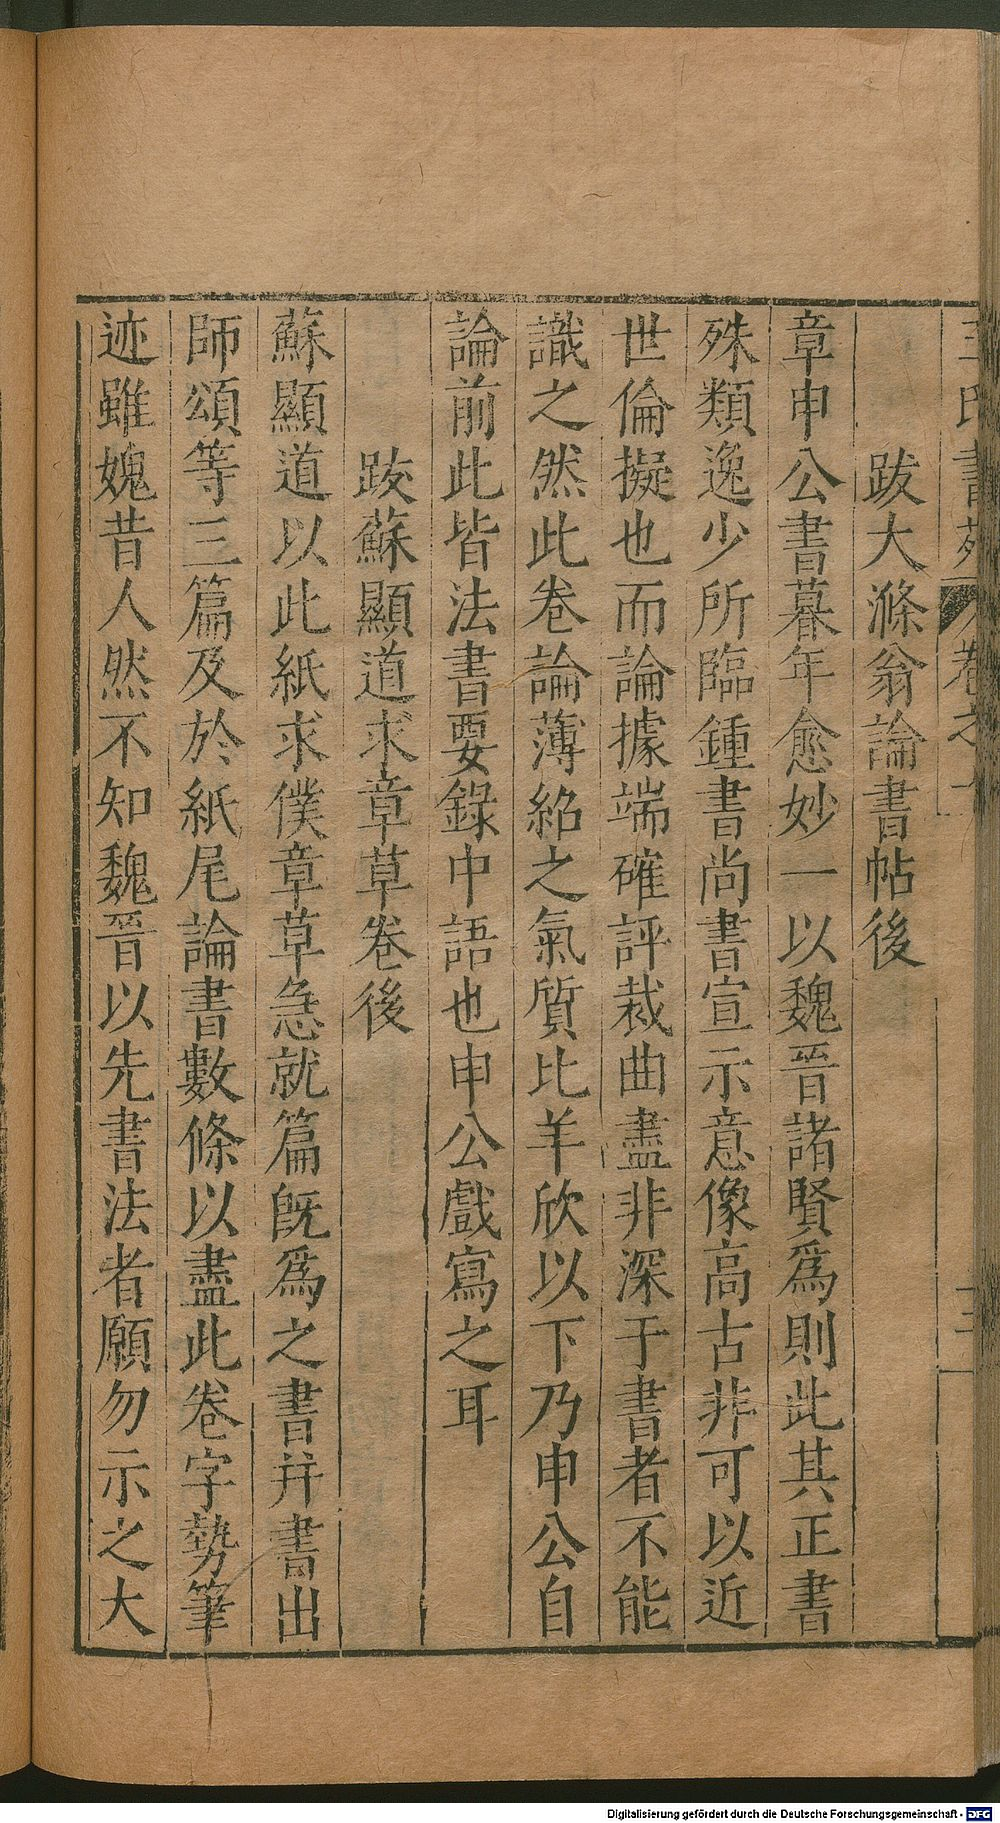 王氏書苑 卷之 三
跋大滌翁論書帖後
章申公書暮年愈妙一以魏晉諸賢爲則此其正書
殊類逸少所臨鍾書尚書宣示意像高古非可以近
世倫擬也而論據端確評裁曲盡非深于書者不能
識之然此卷論薄紹之氣質比羊欣以下乃申公自
論前此皆法書要錄中語也申公戲寫之耳
跋蘇顯道求章草卷後
蘇顯道以此紙求僕章草急就篇旣爲之書并書出
師頌等三篇及於紙尾論書數條以盡此卷字勢筆
迹雖媿昔人然不知魏晉以先書法者願勿示之大
Digitalisierung gefördert durch die Deutsche Forschungsgemeinschaft - DFG